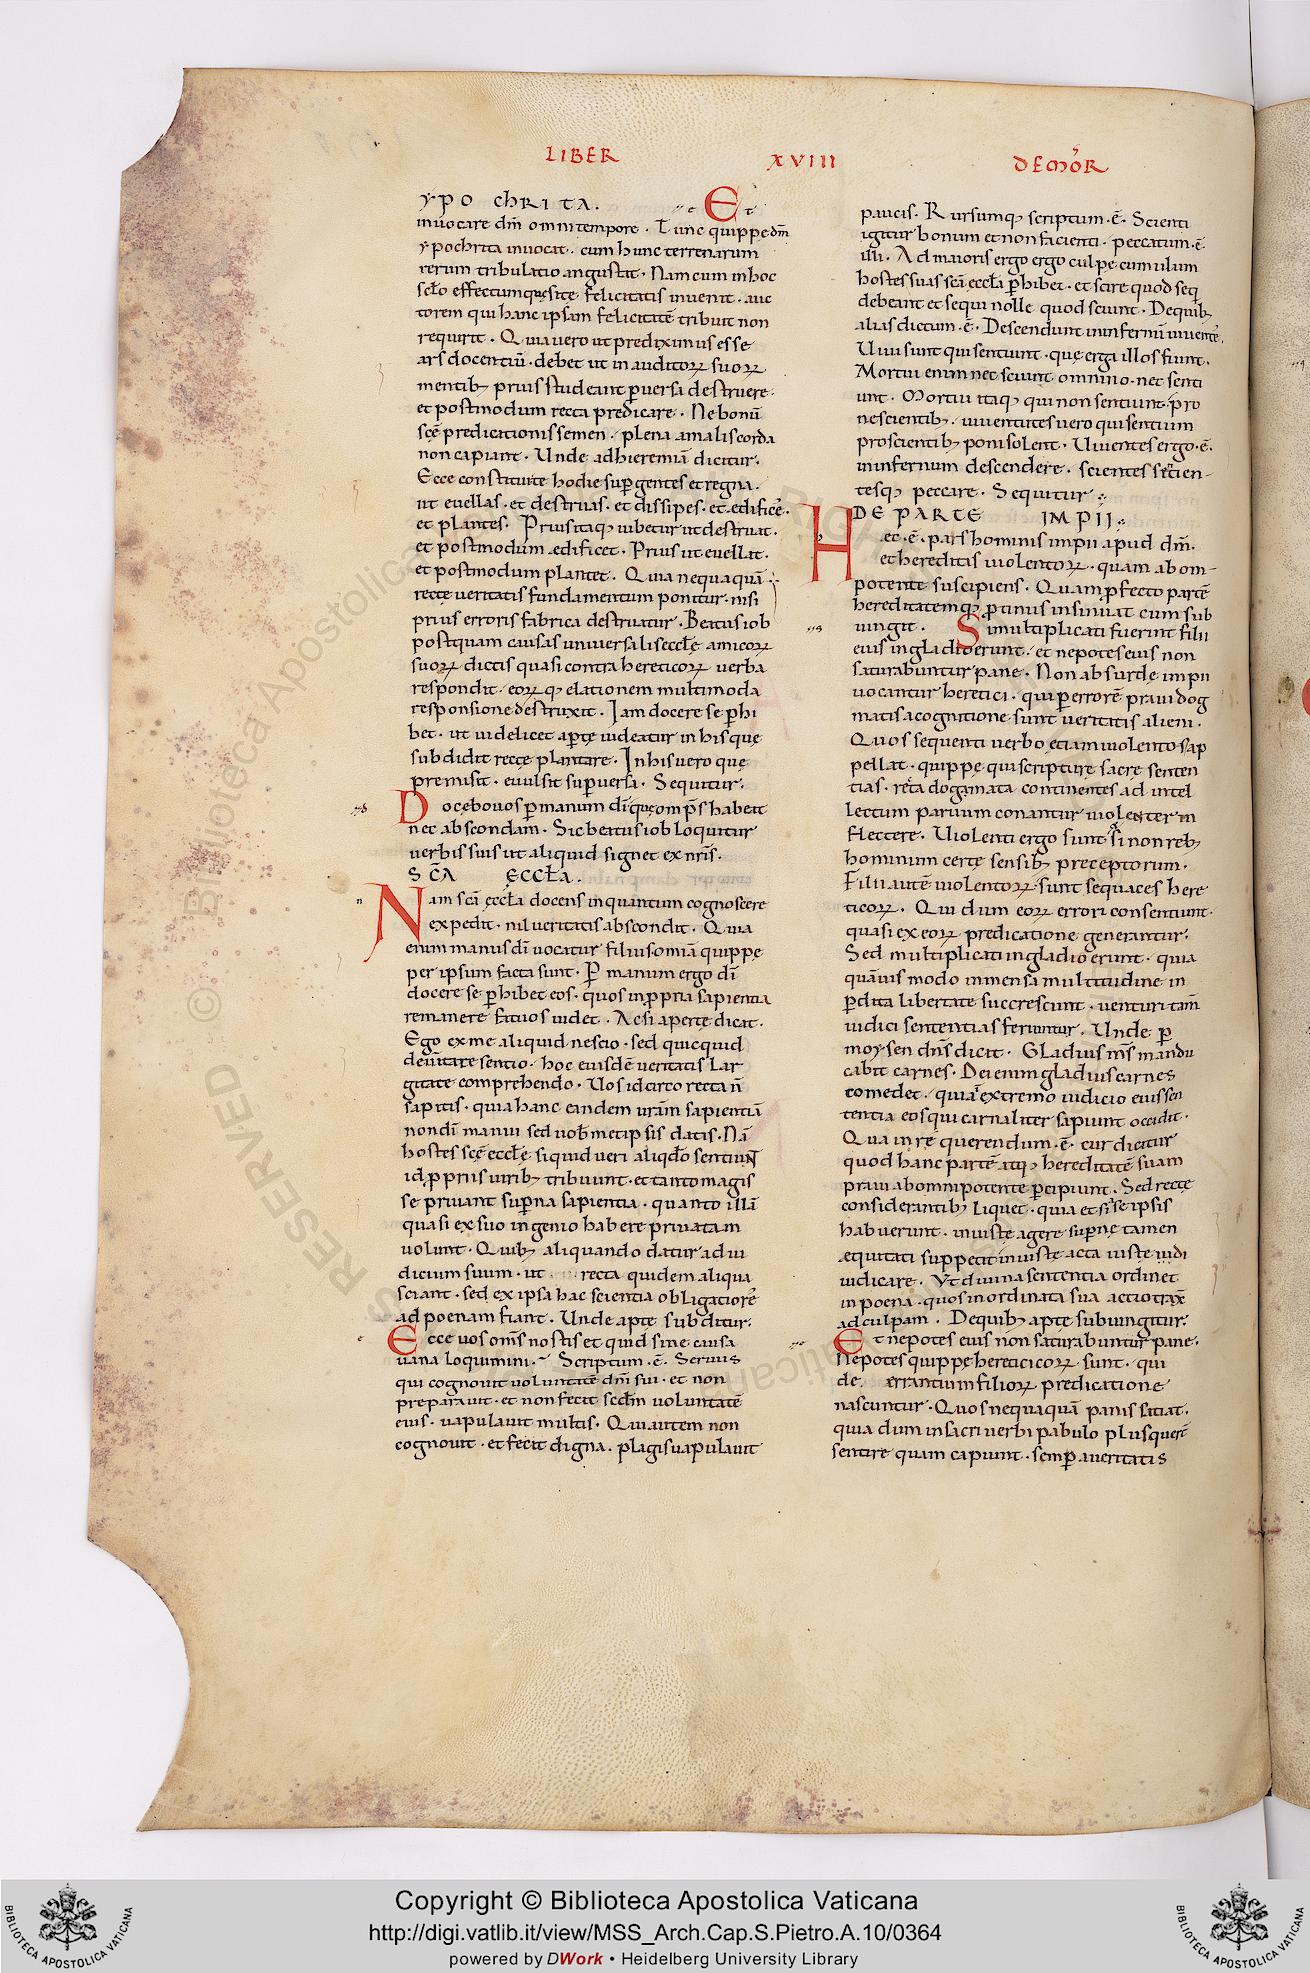 LIBER XVIII DE MOR
YPOCHRITA. Et
inuocare dm̄ omni tempore. Tunc quippe dm̄
ypochrita inuocat. cum hunc terrenarum
rerum tribulatio angustat. Nam cum in hoc
scło effectum quęsitę felicitatis inuenit. auc
torem qui hanc ipsam felicitatē tribuit non
requirit. Quia uero ut prediximus esse
ars docentiū. debet ut in auditoꝝ suoꝝ
mentibꝫ prius studeant ꝑuersa destruere.
et postmodum recta predicare. Ne bonū
scę predicationis semen. plena a malis corda
non capiant. Unde ad hieremiā dicitur.
Ecce constituite hodie suꝑ gentes et regna.
ut euellas. et destruas. et dissipes. et edifices.
et plantes. Prius itaqꝫ iubetur ut destruat.
et postmodum edificet. Prius ut euellat.
et postmodum plantet. Quia nequaquā
recte ueritatis fundamentum ponitur. nisi
prius erroris fabrica destruatur. Beatus iob
postquam causas uniuersalis ecclę amicoꝝ
suoꝝ dictis quasi contra hereticoꝝ uerba
respondit. eoꝝ qꝫ elationem multimoda
responsione destruxit. Iam docere se ꝑhi
bet. ut uidelicet aperte uideatur in his quę
subdidit recte plantare. In his uero quę
premisit. euulsit suꝑuersa. Sequitur.
Docebo uos ꝑ manum dī quę omp̄s habeat
nec abscondam. Sic beatus iob loquitur
uerbis suis ut aliquid signet ex nr̄is.
SC̄A ĘCCŁA.
Nam scā ęccła docens inquantum cognoscere
expedit. nil ueritatis abscondit. Quia
enim manus dī uocatur filius. omīa quippe
per ipsum facta sunt. Ꝑ manum ergo dī
docere se ꝑhibet eos. quos in ꝓpria sapientia
remanere fatuos uidet. Ac si aperte dicat.
Ego ex me aliquid nescio. sed quicquid
de ueritate sentio. hoc eiusdē ueritatis lar
gitate comprehendo. Uos idcirco recta n̄
sapitis. quia hanc eandem uram̄ sapientiā
non dī manui sed uobmetipsis datis. Nā
hostes scę ecclę siquid ueri aliqdo sentiun̄t
id ꝓpriis uiribꝫ tribuunt. et tanto magis
se priuant suꝑna sapientia. quanto illā
quasi ex suo ingenio habere priuatam
uolunt. Quibꝫ aliquando datur ad iu
dicium suum. ut recta quidem aliqua
sciant. sed ex ipsa hac scientia obligatiores
ad poenam fiant. Unde apte subditur.
Ecce uos om̄s nostis et quid sine causa
uana loquimini. Scriptum. ē. Seruus
qui cognouit uoluntatē dm̄i sui. et non
preparauit. et non fecit scdm̄ uoluntatē
eius. uapulauit multis. Qui autem non
cognouit. et fecit digna. plagis uapulauit
paucis. Rursumqꝫ scriptum. ē. Scienti
igitur bonum et non facienti. peccatum. ē
illi. Ad maioris ergo ergo culpę cumulum
hostes suas scā eccła ꝑhibet. et scire quod seq
debeant et sequi nolle quod sciunt. De quibꝫ
alias dictum. ē. Descendunt in infernū uiuentes.
Uiui sunt qui sentiunt. quę erga illos fiunt.
Mortui enim nec sciunt omnino. nec senti
unt. Mortui itaqꝫ qui non sentiunt. pro
nescientibꝫ. uiuentes uero qui sentiunt
pro scientibꝫ poni solent. Uiuentes ergo. ē.
in infernum descendere. scientes sentien-
tesqꝫ peccare. Sequitur
DE PARTE IMPII
Hec. ē. pars hominis impii apud dm̄.
et hereditas uiolentoꝝ. quam ab om-
potente suscipiens. Quam ꝓfecto partē
hereditatemqꝫ ꝓtinus insinuat cum sub
iungit. Si multiplicati fuerint filii
eius in gladio erunt. et nepotes eius non
saturabuntur pane. Non absurde impii
uocantur heretici. qui ꝑ errorē praui dog
matis a cognitione sunt ueritatis alieni.
Quos sequenti uerbo etiam uiolentos ap
pellat. quippe qui scripture sacre senten
tias. recta dogamata continentes ad intel
lectum prauum conantur uiolenter in
flectere. Uiolenti ergo sunt. si non rebꝫ
hominum certe sensibꝫ preceptorum.
Filii autē uiolentoꝝ sunt sequaces here
ticoꝝ. Qui dum eoꝝ errori consentiunt.
quasi ex eoꝝ predicatione generantur.
Sed multiplicati in gladio erunt. quia
quāuis modo inmensa multitudine in
ꝑdita libertate succrescunt. uenturi tam̄
iudici sententias feriuntur. Unde ꝑ
moysen dn̄s dicit. Gladius m̄s mandu
cabit carnes. Dei enim gladius carnes
comedet. quia extremo iudicio eius sen
tentia eos qui carnaliter sapiunt occidit.
Qua in re querendum. ē. cur dicitur
quod hanc partē atqꝫ hereditatē suam
praui ab omnipotente ꝑcipiunt. Sed recte
considerantibꝫ liquet. quia etsi se ipsis
habuerunt. iniuste agere suꝑne tamen
equitati suppetit iniuste acta iuste iudi
iudicare. Ut diuina sententia ordinet
in poena. quos inordinata sua actio trax̄
ad culpam. De quibꝫ apte subiungitur.
Et nepotes eius non saturabuntur pane.
Nepotes quippe hereticicoꝝ sunt. qui
de errantium filioꝝ predicatione
nascuntur. Quos nequaquā panis satiat.
quia dum in sacri uerbi pabulo plus querē
sentire quam capiunt. semꝑ a ueritatis
© Biblioteca Apostolica Vaticana
RIGHTS RESERVED
Copyright © Biblioteca Apostolica Vaticana
http://digi.vatlib.it/view/MSS_Arch.Cap.S.Pietro.A.10/0364
powered by DWork • Heidelberg University Library
BIBLIOTECA APOSTOLICA VATICANA
BIBLIOTECA APOSTOLICA VATICANA